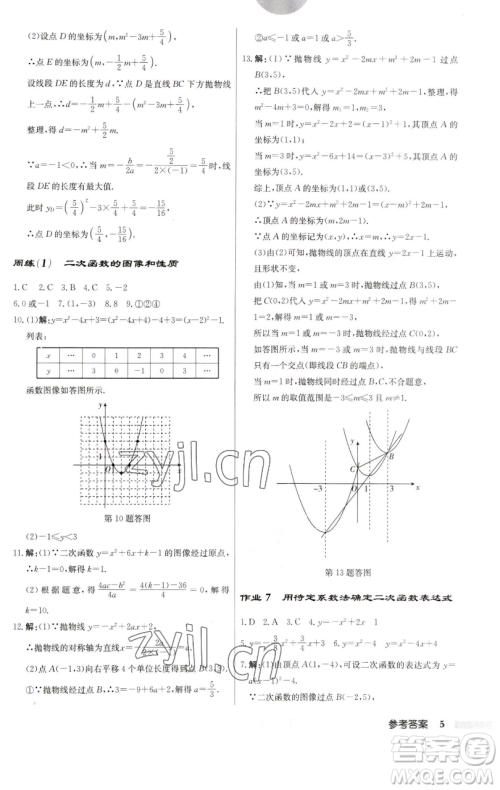 (2)设点 D 的坐标为(m,m²-3m+5/4),
∴点 E 的坐标为(m,-1/2m+5/4).
设线段 DE 的长度为 d,∵点 D 是直线 BC 下方抛物线
上一点,∴d=-1/2m+5/4-(m²-3m+5/4),
整理,得 d=-m²+5/2m.
∵a=-1<0,∴当 m=-b/2a=-(5/2)/(2×(-1))=5/4时,线
段 DE 的长度有最大值.
此时 y_D=(5/4)²-3×5/4+5/4=-15/16,
∴点 D 的坐标为(5/4,-15/16).
周练(1) 二次函数的图像和性质
1.C 2.C 3.B 4.C
6.0或-1 7.(1,-3) 8.8 9.①②④
10.(1)解:∵y=x²-4x+3=x²-4x+4-1=(x-2)²-1.
列表:
x … 0 1 2 3 4 …
y … 3 0 -1 0 3 …
函数图像如答图所示.
第10题答图
(2)-1≤y<3
11.解:(1)∵二次函数 y=x²+6x+k 的图像经过原点,
∴k=0.
(2)根据题意,得 (4ac-b²)/4a=(4×1·k-36)/4=0,
∴k=9.
12.解:(1)∵抛物线 y=-x²+
∴抛物线的对称轴为直线 x=
(2)点 A(-1,3)向右平移 4 个单位长度得到点
①∵抛物线经过点 B(3,3),∴3=-9+6a+2,解得 a=5/3.
②a≤-1或 a>5/3
13.解:(1)∵抛物线 y=x²-2mx+m²+2m-1 过点
B(3,5),
∴把 B(3,5)代入 y=x²-2mx+m²+2m-1,整理,得
m²-4m+3=0,解得 m₁=1,m₂=3.
当 m=1时,y=x²-2x+2=(x-1)²+1,其顶点 A 的
坐标为(1,1);
当 m=3时,y=x²-6x+14=(x-3)²+5,其顶点 A 的
坐标为(3,5).
综上,顶点 A 的坐标为(1,1)或(3,5).
(2)∵y=x²-2mx+m²+2m-1=(x-m)²+2m-1,
∴顶点 A 的坐标为(m,2m-1).
∵点 A 的坐标为
∴抛物线的顶点在直线 y=2x-1上运动,
且形状不变.
由(1)知,当 m=1或3时,抛物线过点 B(3,5).
把 C(0,2)代入 y=x²-2mx+m²+2m-1,得
m²+2m-1=2,解得 m=1或-3,
∴当 m=1或-3时,抛物线经过点 C(0,2).
如答图所示,当 m=-3或3时,抛物线与线段 BC
只有一个交点(即线段 CB 的端点),
当 m=1时,抛物线同时过点 B,C,不合题意,
∴m 的取值范围是-3≤m≤3且 m≠1.
第13题答图
作业 7 用待定系数法确定二次函数表达式
1.D 2.A 4.y=-x²+2x 1
7.解:(1)由顶点 A(1,-4),可设二次函数的表达式为 y=
a(x-1)²-4(a≠0).
∵二次函数的图像过点 B(-2,5),
参考答案 5
zyjl.cn
zyjl.cn